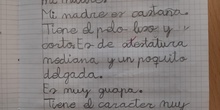 mi madre.
Mi madre es castaña.
Tiene el pelo liso y
corto. Es de estatura
mediana y un poquito
delgada.
Es muy guapa.
Tiene el caracter muy